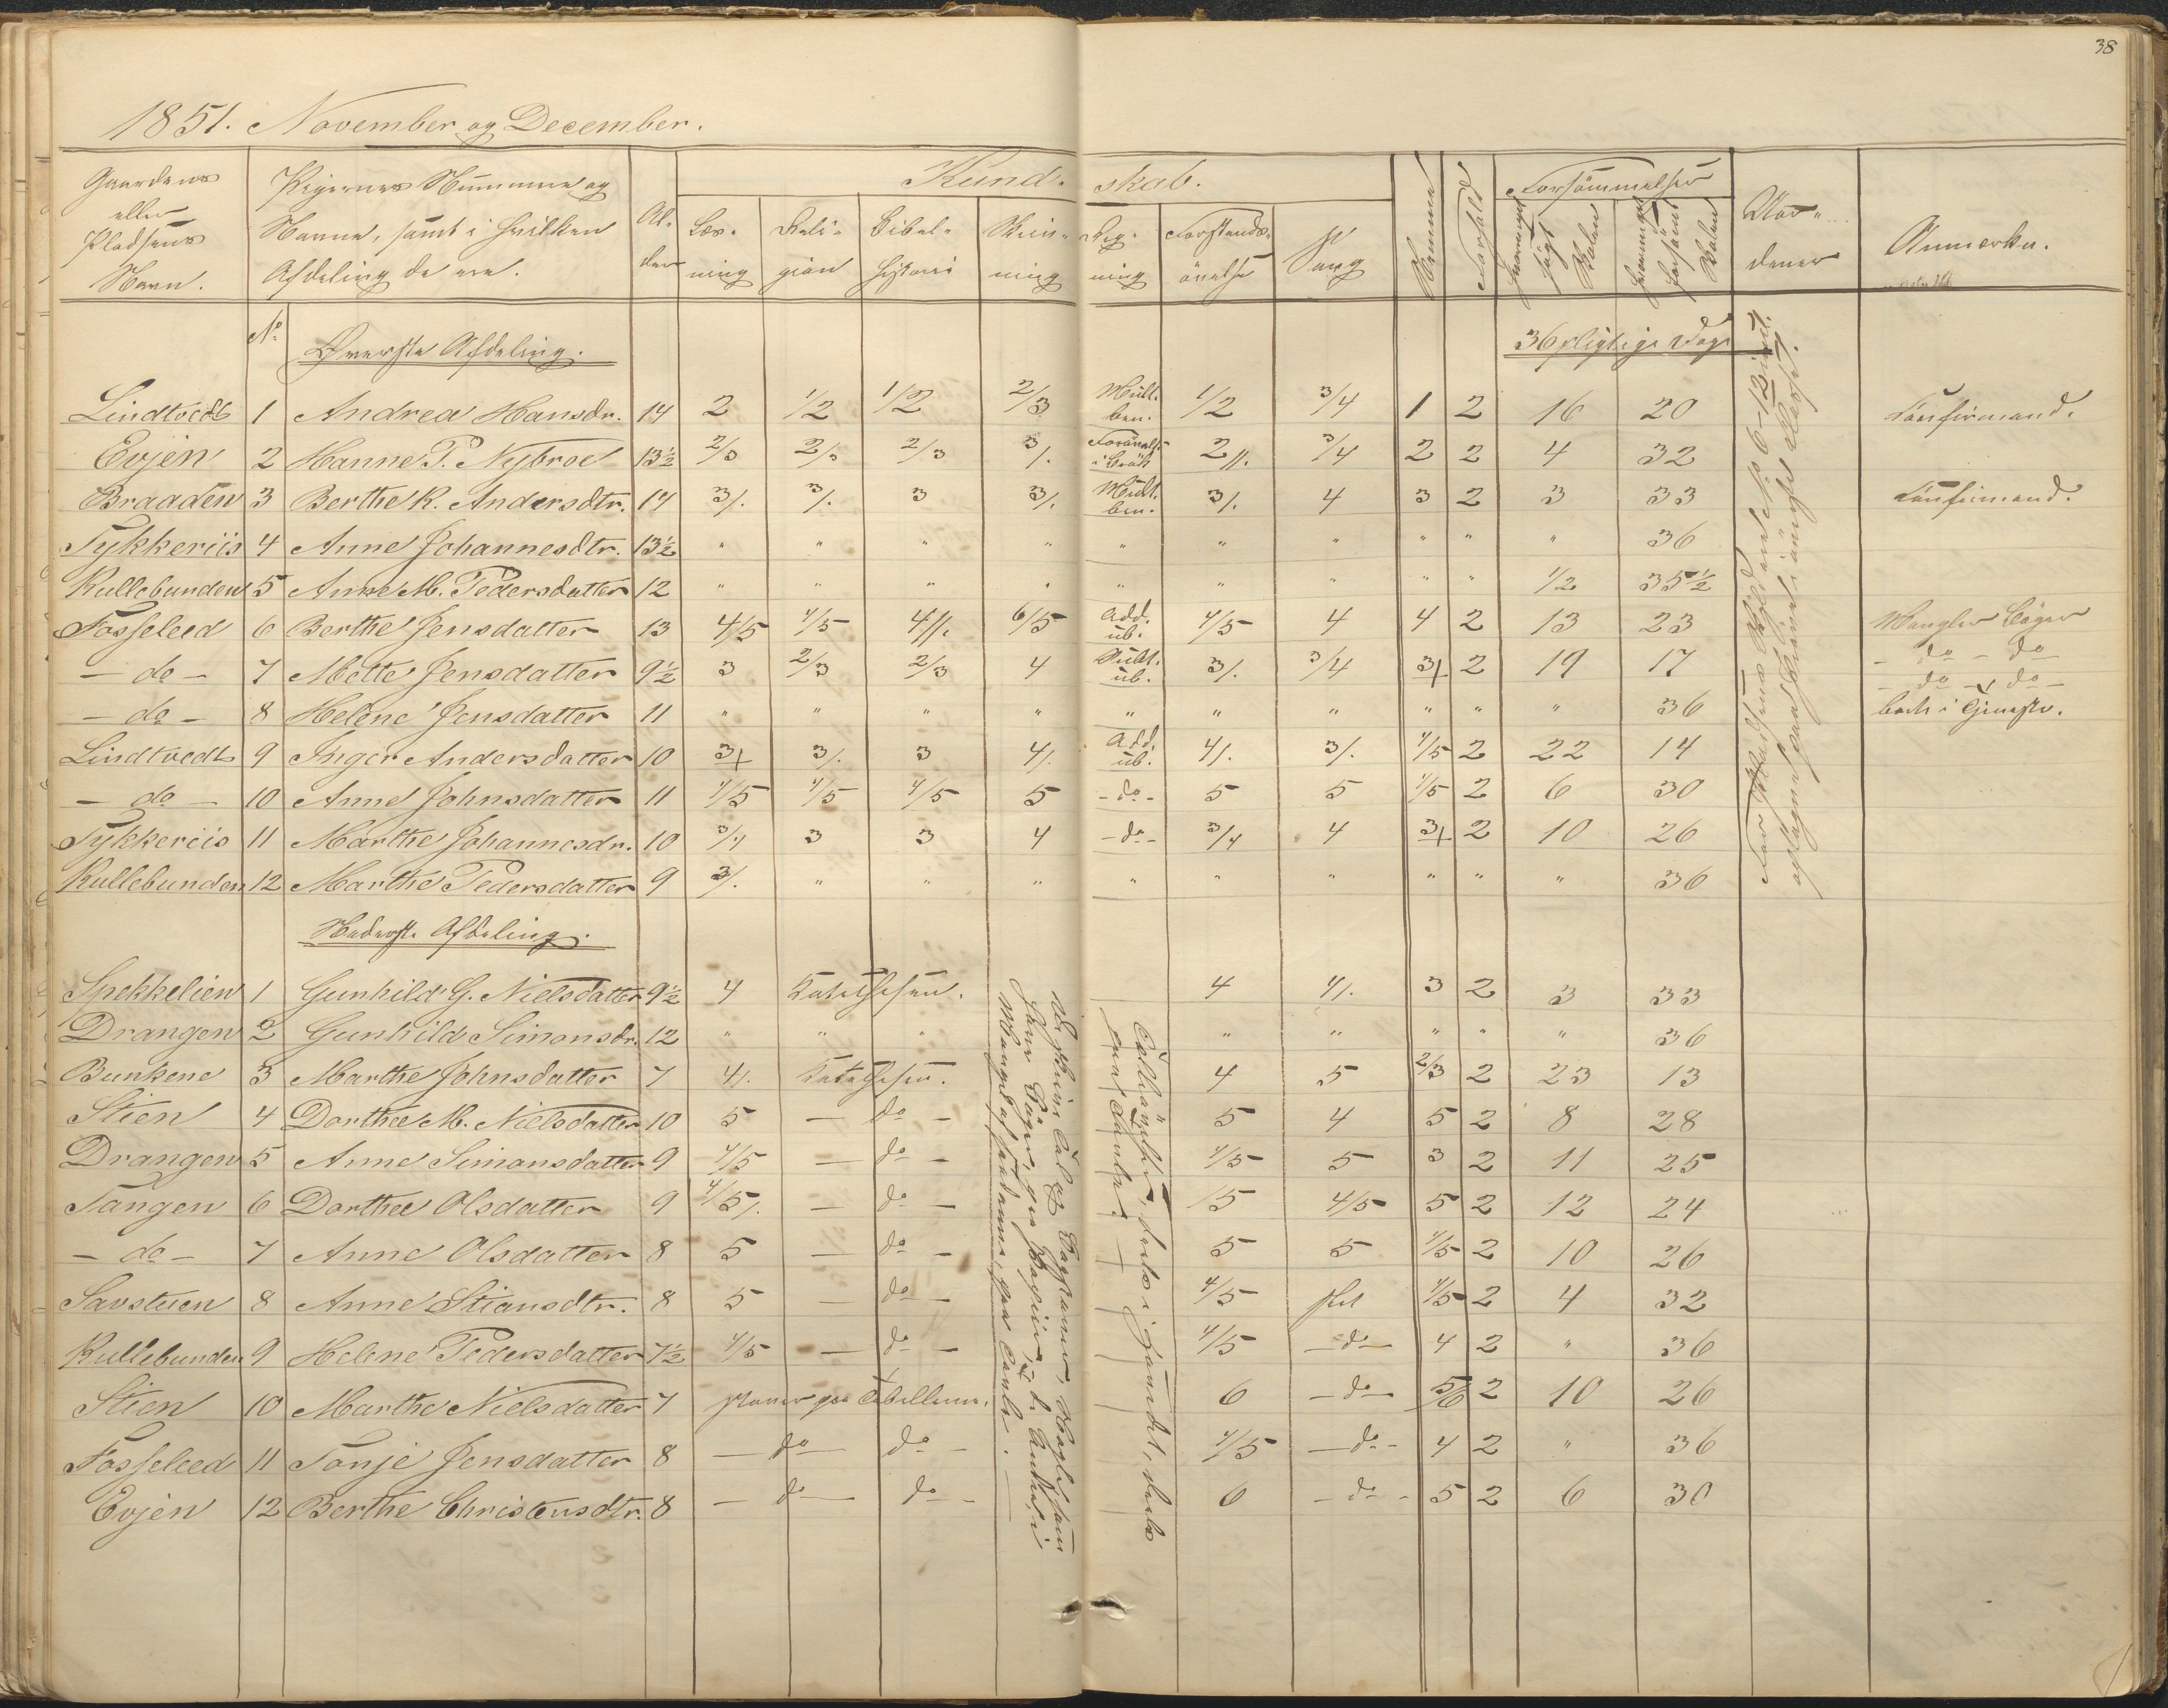 38
1851. November og December.
Gaardens eller Pladsens Navn. | Pigernes Nummere og Navne, samt i hvilken Afdeling de ere. | Alder | Kundskab. | Nemme | Forhold | Forsømmelser | | Anmærkn.
Læsning | Religion | Bibelhistorie | Skrivning | Regning | Forstandsøvelse | Sang | søgt Skolen | forsømt Skolen
No. Øverste Afdeling. 36 pligtige Dage
Lindtvedt 1 Andrea Hansdr. 14 2 1/2 1/2 2/3 Mult. ben. 1/2 3/4 1 2 16 20 Confirmand.
Evjen 2 Hanne P. Nybroe 13½ 2/3 2/3 2/3 3/. i Brøk 2//. 3/4 2 2 4 32
Braaden 3 Berthe K. Andersdtr. 14 3/. 3/. 3 3/. Mult. ben. 3/. 4 3 2 3 33 Confirmand.
Tykkeriis 4 Anne Johannesdtr. 13½ " " " " " " " " " " 36
Kullebunden 5 Anne M. Pedersdatter 12 " " " " " " " " " 1/2 35½
Fosseleed 6 Berthe Jensdatter 13 4/5 4/5 4//. 6/5 Add. ub. 4/5 4 4 2 13 23 Mangler Bøger
- do - 7 Mette Jensdatter 9½ 3 2/3 2/3 4 Mult. ub. 3/. 3/4 3+ 2 19 17 - do - do
- do - 8 Helene Jensdatter 11 " " " " " " " " " " 36 - do - do -
Lindtvedt 9 Inger Andersdatter 10 3+ 3/. 3 4/. Add. ub. 4/. 3/. 4/5 2 22 14
- do - 10 Anne Johnsdatter 11 4/5 4/5 4/5 5 - do - 5 5 4/5 2 6 30
Tykkeriis 11 Marthe Johannesdr. 10 3/4 3 3 4 - do - 3/4 4 3+ 2 10 26
Kullebunden 12 Marthe Pedersdatter 9 3/. " " " " " " " " " 36
Nederste Afdeling.
Spekkelien 1 Gunhild G. Nielsdatter 9½ 4 Katechismen. 4 4/. 3 2 3 33
Drangen 2 Gunhild Simonsdr. 12 " " " " " " " " 36
Bunkene 3 Marthe Johnsdatter 7 4/. Katechismen. 4 5 2/3 2 23 13
Stien 4 Dorthee M. Nielsdatter 10 5 - do - 5 4 5 2 8 28
Drangen 5 Anne Simonsdatter 9 4/5 - do - 4/5 5 3 2 11 25
Tangen 6 Dorthee Olsdatter 9 4/5/. - do - 5 4/5 5 2 12 24
- do - 7 Anne Olsdatter 8 5 - do - 5 5 4/5 2 10 26
Savstuen 8 Anne Stiansdtr. 8 5 do - 4/5 slet 4/5 2 4 32
Kullebunden 9 Helene Pedersdatter 7½ 4/5 - do - 4/5 - do - 4 2 " 36
Stien 10 Marthe Nielsdatter 7 staver paa Tabellerne. 6 - do - 5/6 2 10 26
Fosseleed 11 Tonje Jensdatter 8 - do - do - 4/5 - do - 4 2 " 36
Evjen 12 Berthe Christensdtr. 8 - do - do - 6 - do - 5 2 6 30